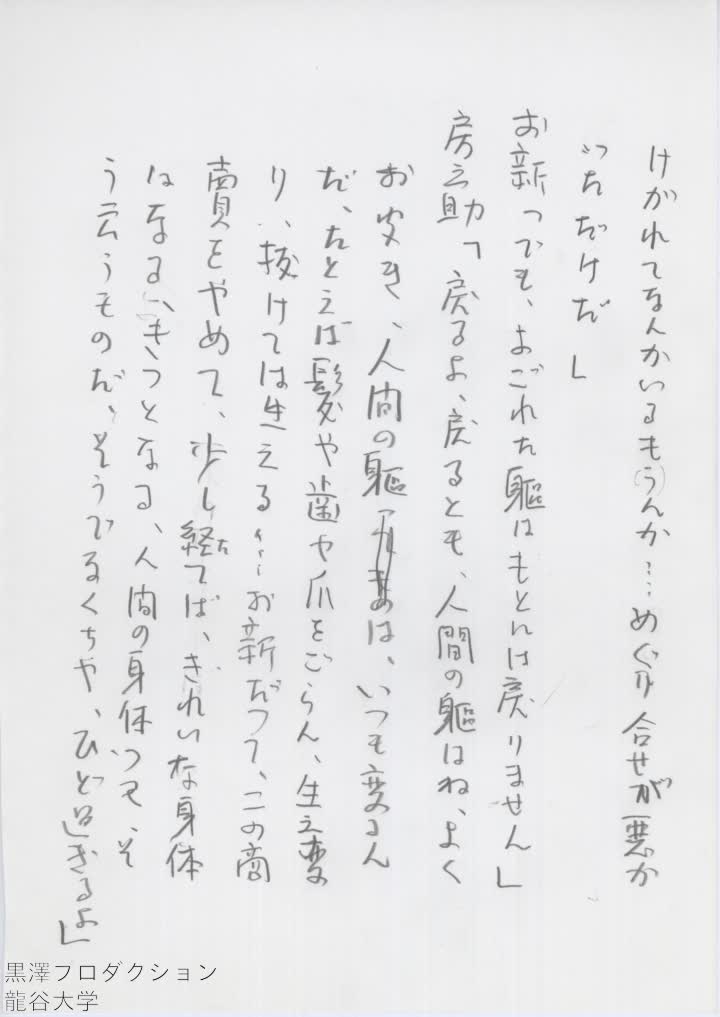 けがれてなんかいるもうんか…めぐり合せが悪か
つただけだ」
お新「でも、よごれた軀はもとには戻りません」
房之助「戻るよ、戻るとも、人間の軀はね、よく
お聞き、人間の軀は、いつも変るん
だ、たとえば髪や歯や爪をごらん、生え変
り、抜けては生える…お新だつて、この商
賣をやめて、少し経てば、きれいな身体
になる、きつとなる、人間の身体つて、そ
う云うものだ、そうでなくちや、ひど過ぎるよ」
黒澤プロダクション
龍谷大学